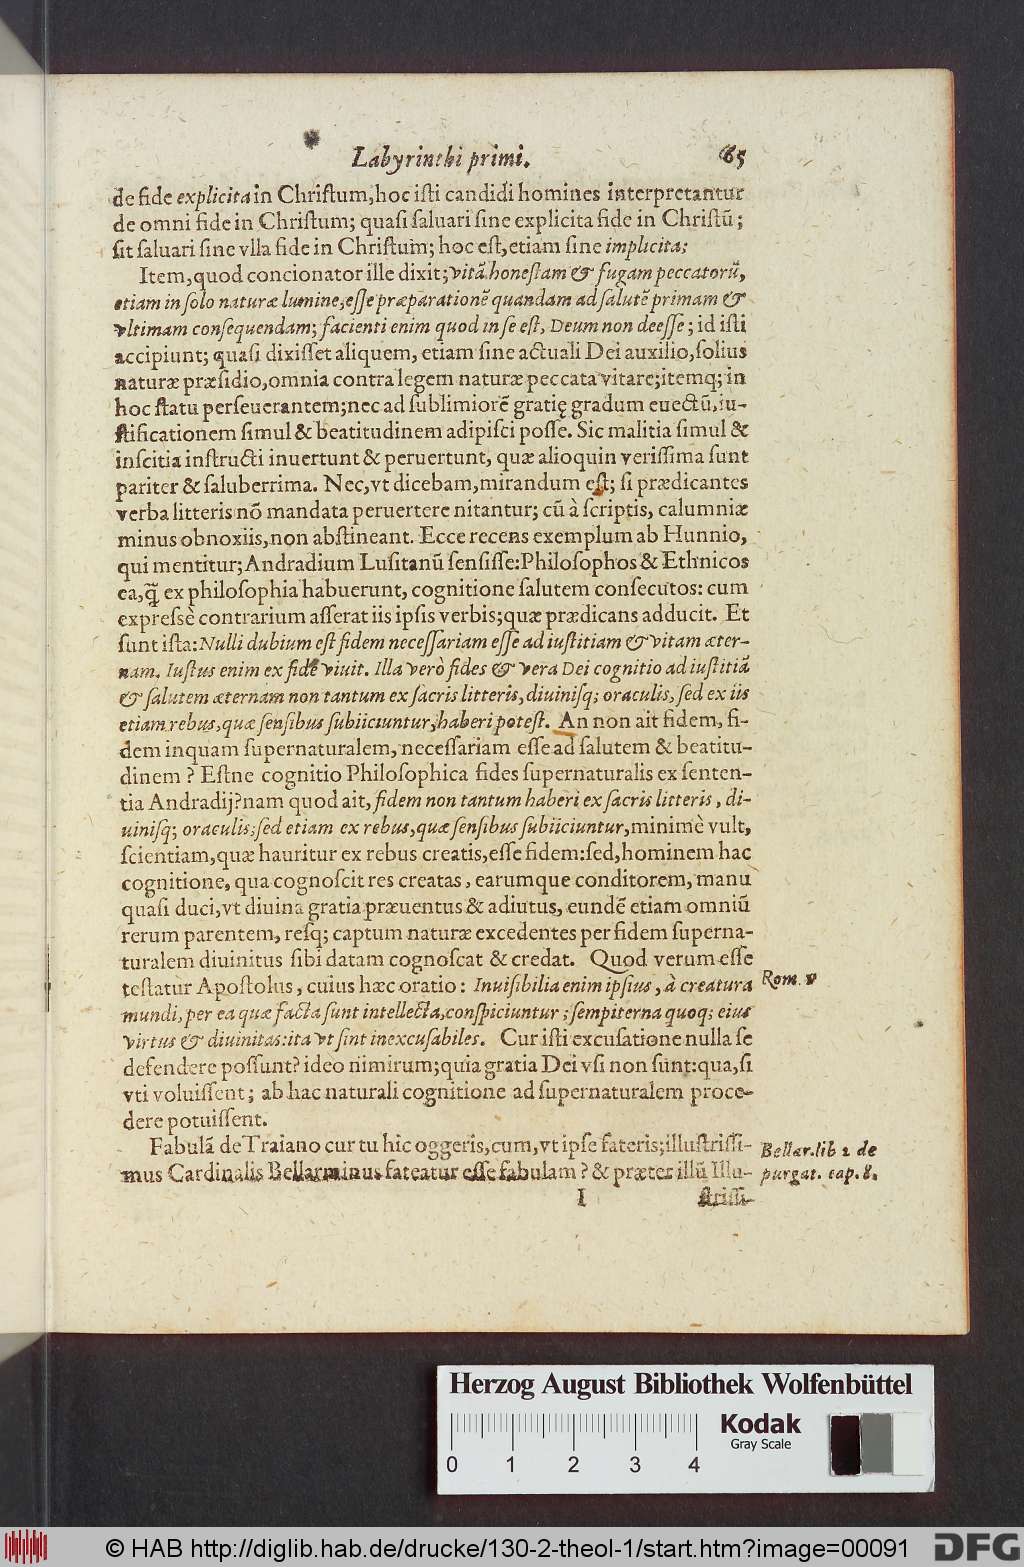 Labyrinthi primi. 65
de fide explicita in Chriſtum, hoc iſti candidi homines interpretantur
de omni fide in Chriſtum; quaſi ſaluari ſine explicita fide in Chriſtū;
ſit ſaluari ſine vlla fide in Chriſtum; hoc eſt, etiam ſine implicita;
Item, quod concionator ille dixit; vitā honeſtam & fugam peccatorū,
etiam in ſolo naturæ lumine, eſſe præparationē quandam ad ſalutē primam &
vltimam conſequendam; facienti enim quod in ſe eſt, Deum non deeſſe; id iſti
accipiunt; quaſi dixiſſet aliquem, etiam ſine actuali Dei auxilio, ſolius
naturæ præſidio, omnia contra legem naturæ peccata vitare; itemq; in
hoc ſtatu perſeuerantem; nec ad ſublimiorē gratię gradum euectū, iu-
ſtificationem ſimul & beatitudinem adipiſci poſſe. Sic malitia ſimul &
inſcitia inſtructi inuertunt & peruertunt, quæ alioquin veriſſima ſunt
pariter & ſaluberrima. Nec, vt dicebam, mirandum eſt; ſi prædicantes
verba litteris nō mandata peruertere nitantur; cū à ſcriptis, calumniæ
minus obnoxiis, non abſtineant. Ecce recens exemplum ab Hunnio,
qui mentitur; Andradium Luſitanū ſenſiſſe: Philoſophos & Ethnicos
ea, q̃ ex philoſophia habuerunt, cognitione ſalutem conſecutos: cum
expreſsè contrarium aſſerat iis ipſis verbis; quæ prædicans adducit. Et
ſunt iſta: Nulli dubium eſt fidem neceſſariam eſſe ad iuſtitiam & vitam æter-
nam. Iuſtus enim ex fide viuit. Illa verò fides & vera Dei cognitio ad iuſtitiā
& ſalutem æternam non tantum ex ſacris litteris, diuiniſq; oraculis, ſed ex iis
etiam rebus, quæ ſenſibus ſubiiciuntur, haberi poteſt. An non ait fidem, fi-
dem inquam ſupernaturalem, neceſſariam eſſe ad ſalutem & beatitu-
dinem? Eſtne cognitio Philoſophica fides ſupernaturalis ex ſenten-
tia Andradij? nam quod ait, fidem non tantum haberi ex ſacris litteris, di-
uiniſq; oraculis; ſed etiam ex rebus, quæ ſenſibus ſubiiciuntur, minimè vult,
ſcientiam, quæ hauritur ex rebus creatis, eſſe fidem: ſed, hominem hac
cognitione, qua cognoſcit res creatas, earumque conditorem, manu
quaſi duci, vt diuina gratia præuentus & adiutus, eundē etiam omniū
rerum parentem, reſq; captum naturæ excedentes per fidem ſuperna-
turalem diuinitus ſibi datam cognoſcat & credat. Quod verum eſſe
teſtatur Apoſtolus, cuius hæc oratio: Inuiſibilia enim ipſius, à creatura
Rom. 1
mundi, per ea quæ facta ſunt intellecta, conſpiciuntur; ſempiterna quoq; eius
virtus & diuinitas: ita vt ſint inexcuſabiles. Cur iſti excuſatione nulla ſe
defendere poſſunt? ideo nimirum; quia gratia Dei vſi non ſunt: qua, ſi
vti voluiſſent; ab hac naturali cognitione ad ſupernaturalem proce-
dere potuiſſent.
Fabulā de Traiano cur tu hic oggeris, cum, vt ipſe fateris; illuſtriſſi-
mus Cardinalis Bellarminus fateatur eſſe fabulam? & præter illū Illu-
Bellar. lib 2 de
purgat. cap. 8.
I ſtriſſi-
Herzog August Bibliothek Wolfenbüttel
Kodak
Gray Scale
0 1 2 3 4
© HAB http://diglib.hab.de/drucke/130-2-theol-1/start.htm?image=00091
DFG